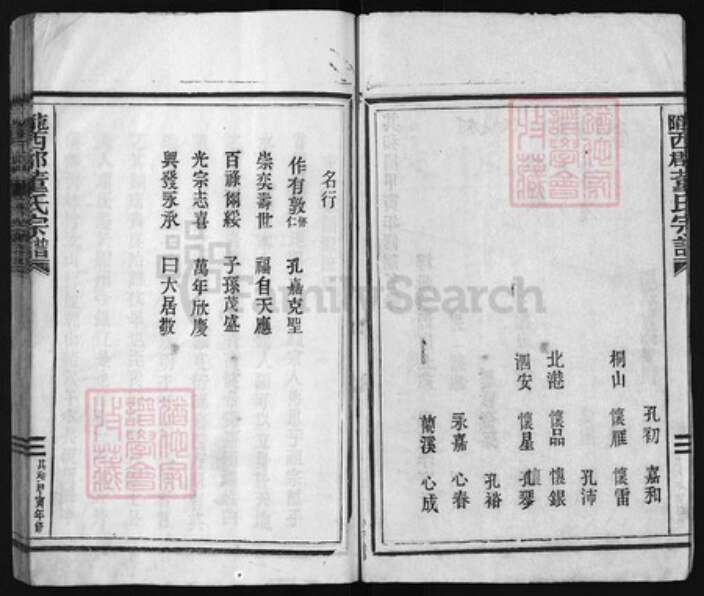 隴西郡董氏宗譜
孔初 嘉和
桐山 懷雁 懷雷
孔沛
北港 懷品 懷銀
泗安 懷星 孔琴
孔裕
永嘉 心春
蘭溪 心成
名行
作有敦仁 孔嘉克聖
崇奕壽世 福自天應
百祿爾綏 子孫茂盛
光宗志喜 萬年欣慶
興發永承 曰大居敬
隴西郡董氏宗譜
共和甲寅年修
FamilySearch